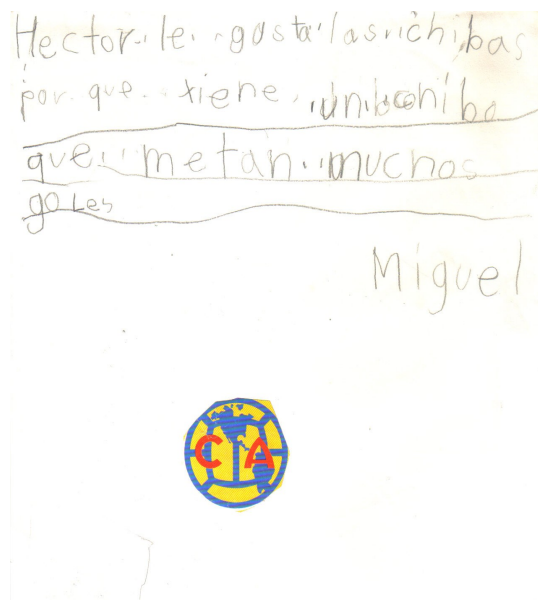 Hector le gusta las chibas
por que tiene un chibo
que metan muchos
goles
Miguel
CA